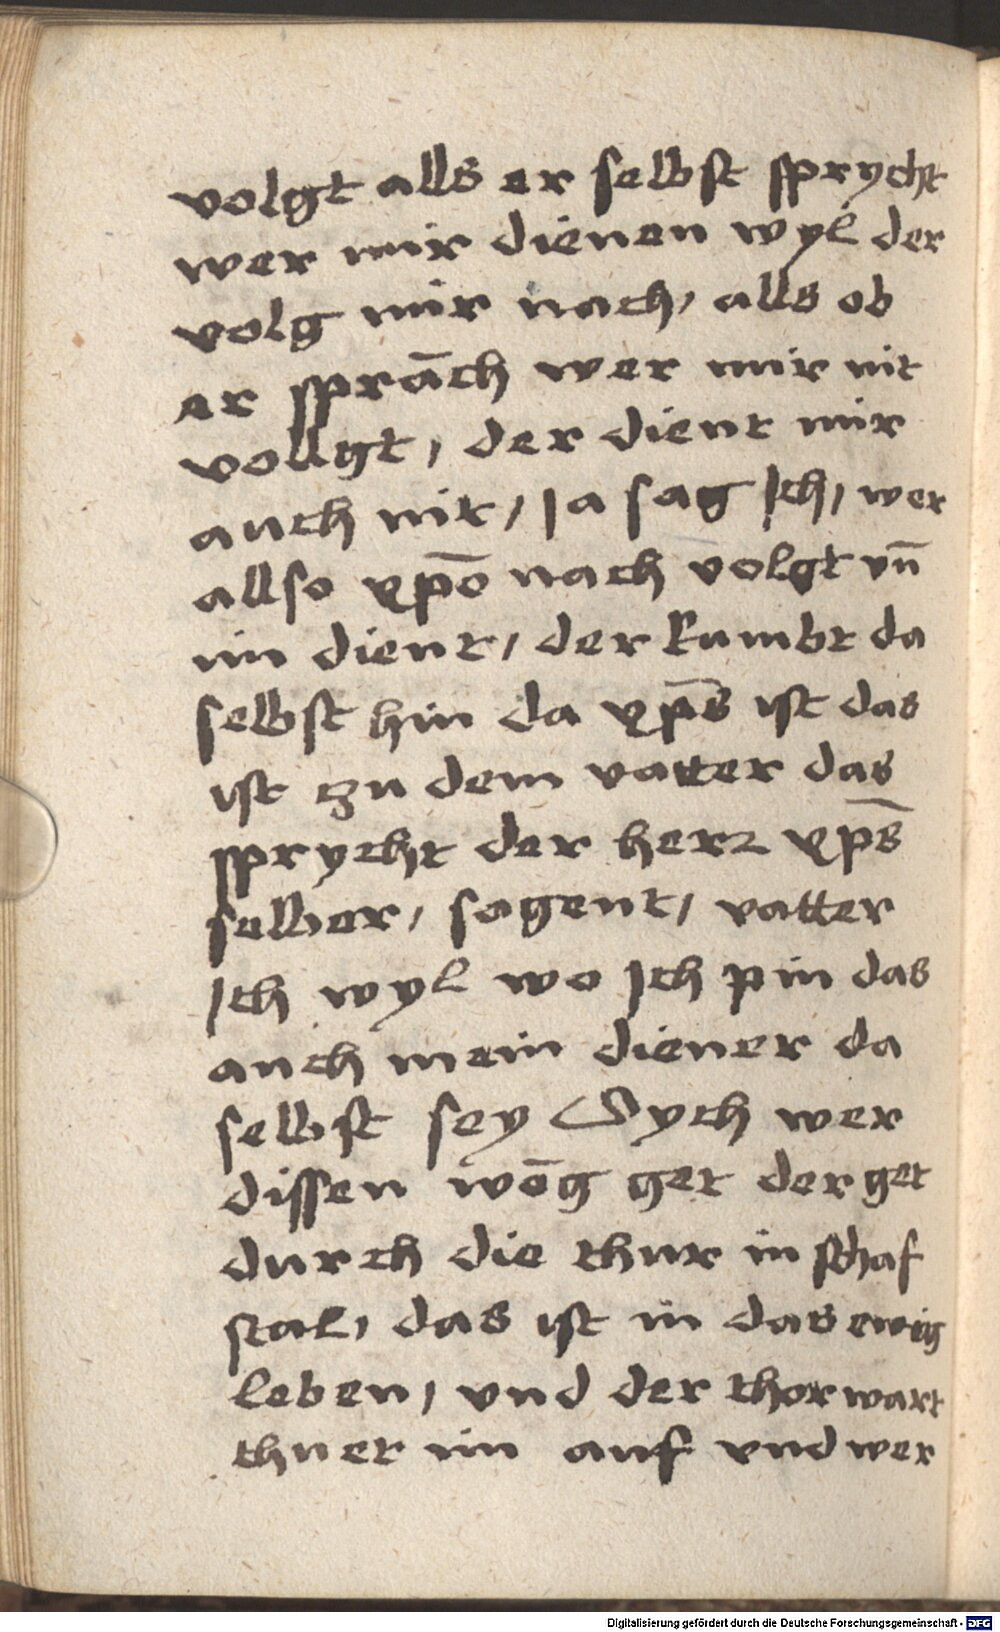 volgt alls er selbst sprycht
wer mir dienen wyl der
volg mir nach, alls ob
er sprāch wer mir nit
vollgt, der dient mir
auch nit, Ja sag Ich, wer
allso xp̄o nach volgt vn̄
im dient, der kumbt da
selbst hin da xp̄s ist das
ist zu dem vatter das
sprycht der herz xp̄s
selber, sagent, vatter
Ich wyl wo Ich pin das
auch mein diener da
selbst sey Sych wer
dissen wōg get der get
durch die thur in schaf
stal, das ist in das ewig
leben, vnd der thorwart
thuet im auf vnd wer
Digitalisierung gefördert durch die Deutsche Forschungsgemeinschaft - DFG